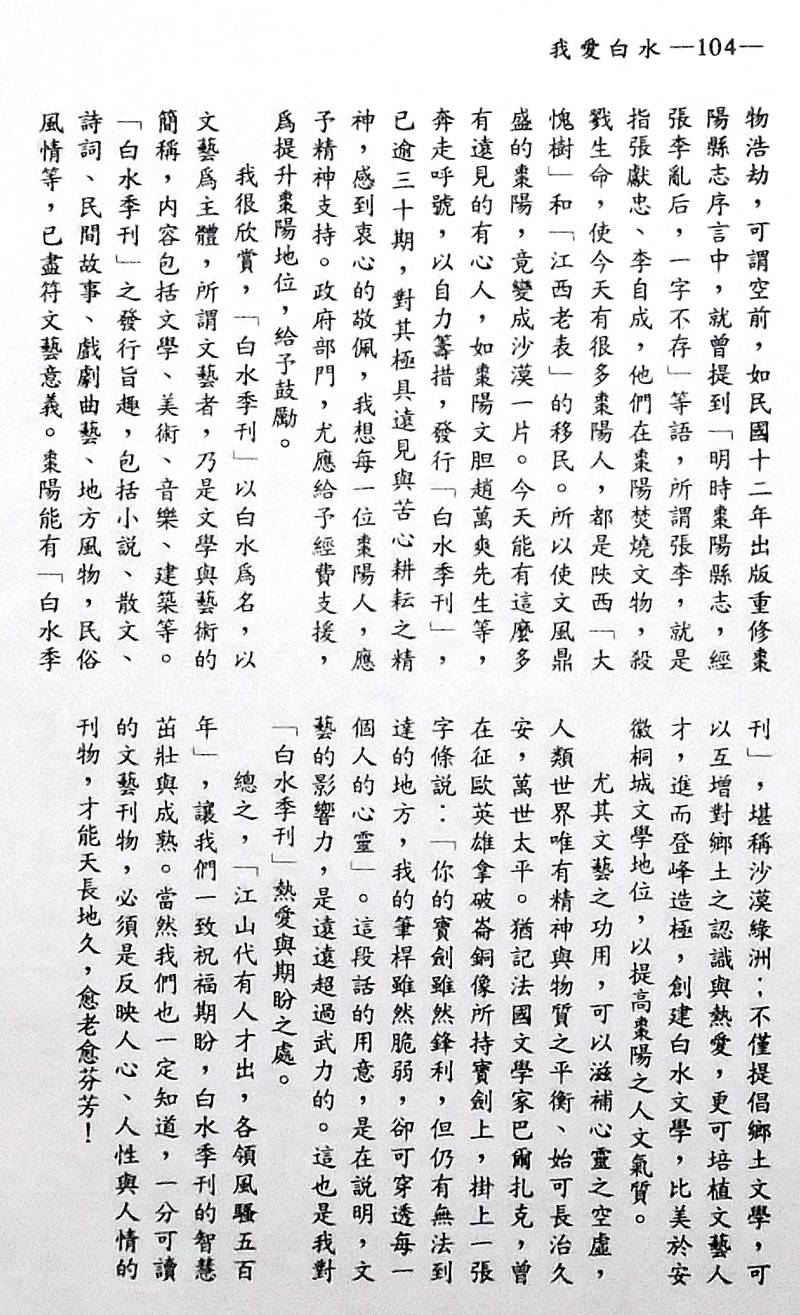 我愛白水 —104—
物浩劫，可謂空前，如民國十二年出版重修棗
陽縣志序言中，就曾提到「明時棗陽縣志，經
張李亂后，一字不存」等語，所謂張李，就是
指張獻忠、李自成，他們在棗陽焚燒文物，殺
戮生命，使今天有很多棗陽人，都是陜西「大
愧樹」和「江西老表」的移民。所以使文風鼎
盛的棗陽，竟變成沙漠一片。今天能有這麼多
有遠見的有心人，如棗陽文胆趙萬爽先生等，
奔走呼號，以自力籌措，發行「白水季刊」，
已逾三十期，對其極具遠見與苦心耕耘之精
神，感到衷心的敬佩，我想每一位棗陽人，應
予精神支持。政府部門，尤應給予經費支援，
爲提升棗陽地位，給予鼓勵。
我很欣賞，「白水季刊」以白水爲名，以
文藝爲主體，所謂文藝者，乃是文學與藝術的
簡稱，内容包括文學、美術、音樂、建築等。
「白水季刊」之發行旨趣，包括小説、散文、
詩詞、民間故事、戲劇曲藝、地方風物，民俗
風情等，已盡符文藝意義。棗陽能有「白水季
刊」，堪稱沙漠綠洲；不僅提倡鄉土文學，可
以互增對鄉土之認識與熱愛，更可培植文藝人
才，進而登峰造極，創建白水文學，比美於安
徽桐城文學地位，以提高棗陽之人文氣質。
尤其文藝之功用，可以滋補心靈之空虛，
人類世界唯有精神與物質之平衡、始可長治久
安，萬世太平。猶記法國文學家巴爾扎克，曾
在征歐英雄拿破崙銅像所持寶劍上，掛上一張
字條説：「你的寶劍雖然鋒利，但仍有無法到
達的地方，我的筆桿雖然脆弱，卻可穿透每一
個人的心靈」。這段話的用意，是在説明，文
藝的影響力，是遠遠超過武力的。這也是我對
「白水季刊」熱愛與期盼之處。
總之，「江山代有人才出，各領風騷五百
年」，讓我們一致祝福期盼，白水季刊的智慧
茁壯與成熟。當然我們也一定知道，一分可讀
的文藝刊物，必須是反映人心、人性與人情的
刊物，才能天長地久，愈老愈芬芳！